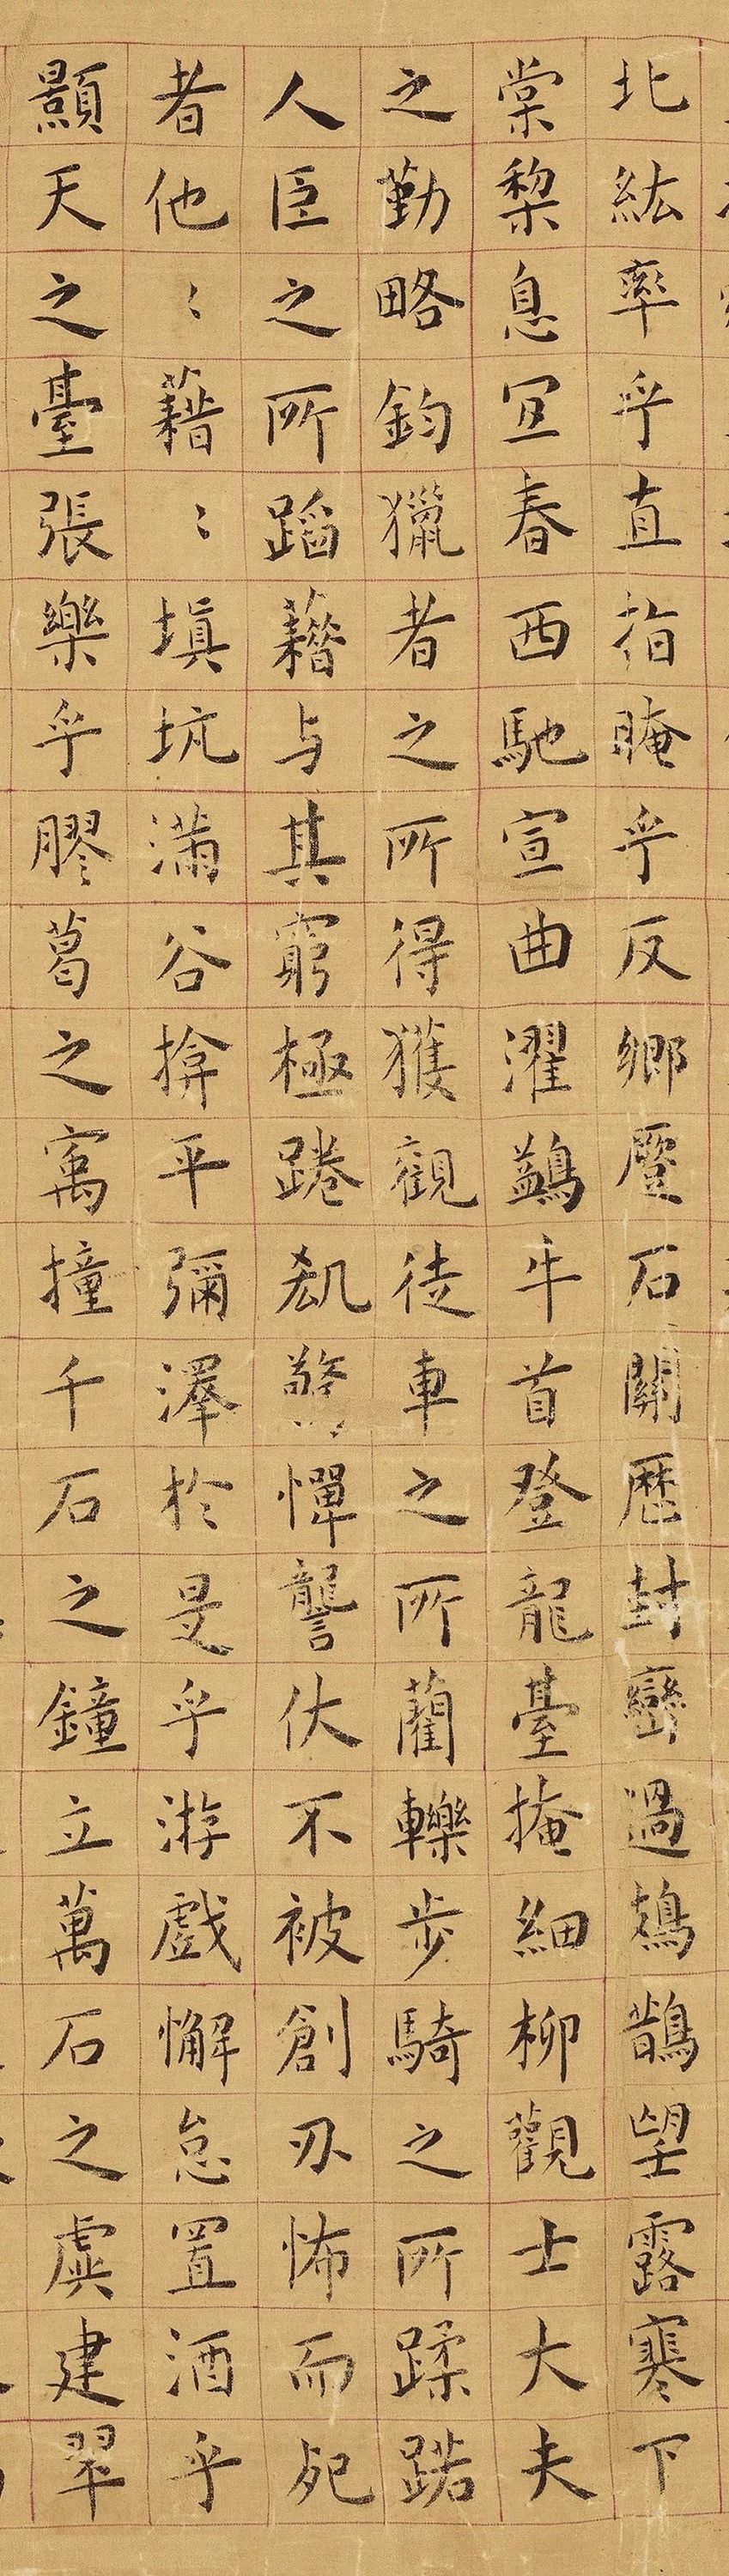 北紘率乎直指晻乎反鄉蹷石關歷封巒過鳷鵲望露寒下
棠梨息宜春西馳宣曲濯鷁牛首登龍臺掩細柳觀士大夫
之勤略鈞獵者之所得獲觀徒車之所藺轢步騎之所蹂踖
人臣之所蹈藉与其窮極踡㕁驚憚讋伏不被創刃怖而死
者他〻藉〻填坑滿谷揜平彌澤於是乎游戲懈怠置酒乎
顥天之臺張樂乎膠葛之㝢撞千石之鐘立萬石之虡建翠